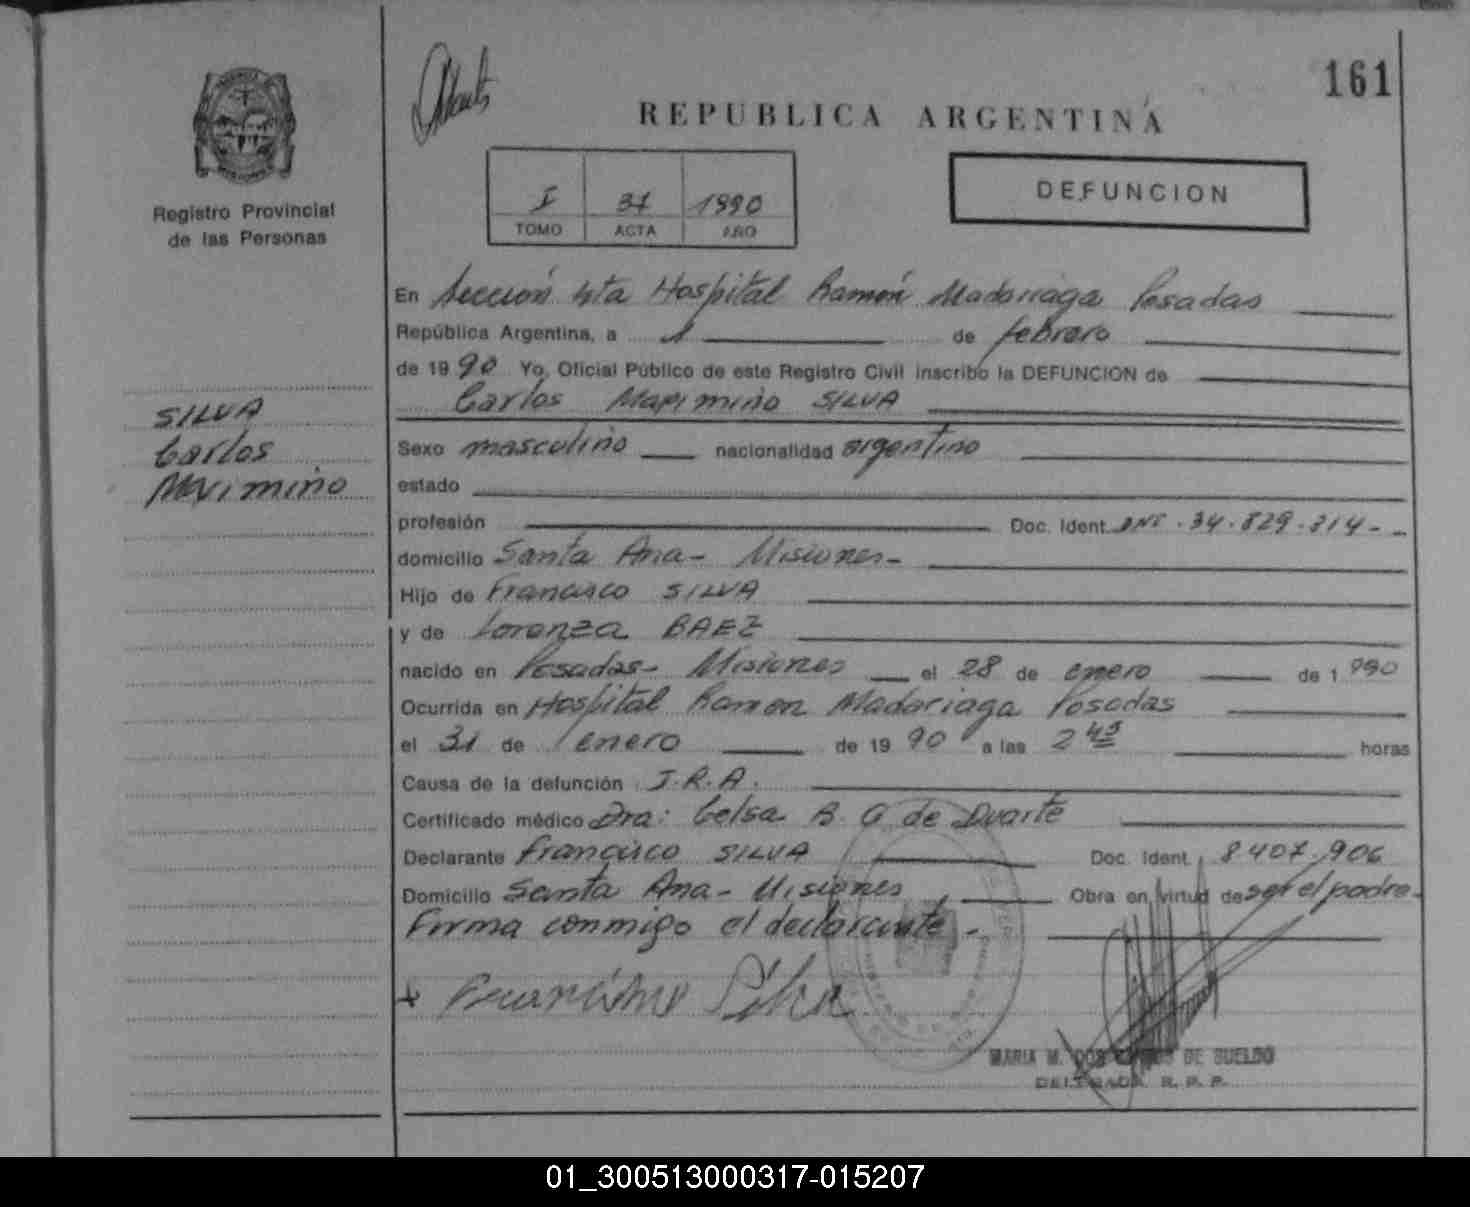 161
REPUBLICA ARGENTINA
Registro Provincial
de las Personas
I 31 1990
TOMO ACTA AÑO
DEFUNCION
En Sección 4ta Hospital Ramón Madariaga Posadas
República Argentina, a 1 de febrero
de 1990 Yo, Oficial Público de este Registro Civil inscribo la DEFUNCION de
Carlos Maximino SILVA
SILVA
Carlos
Maximino
Sexo masculino nacionalidad argentino
estado
profesión Doc. Ident. DNI. 34.829.314-
domicilio Santa Ana- Misiones-
Hijo de Francisco SILVA
y de Lorenza BAEZ
nacido en Posadas- Misiones el 28 de enero de 1990
Ocurrida en Hospital Ramon Madariaga Posadas
el 31 de enero de 1990 a las 2 45 horas
Causa de la defunción I.R.A.
Certificado médico Dra: Celsa B. G de Duarte
Declarante Francisco SILVA Doc. Ident. 8407.906
Domicilio Santa Ana- Misiones Obra en virtud de ser el padre-
Firma conmigo el declarante-
Francisco Silva
MARIA M. DOS DE SUELDO
DELEGADA R. P. P.
01_300513000317-015207